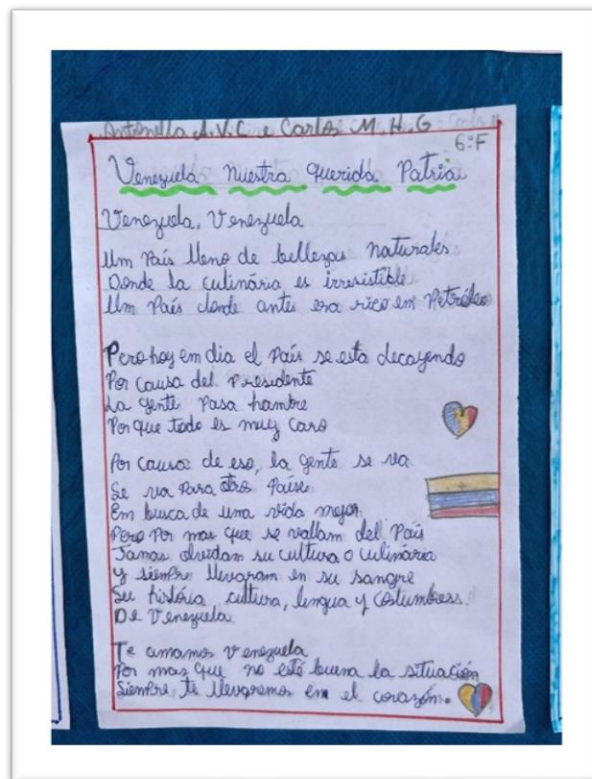 Antonella A.V.C e Carlos M.H.G
6°F
Venezuela Nuestra Querida Patria
Venezuela, Venezuela
Um País lleno de bellezas naturales
Donde la culinária es irresistible
Um País donde antes era rico em Petróleo
Pero hoy em dia el País se está decayendo
Por causa del Presidente
La gente Pasa hambre
Por que todo es muy caro
Por causa de eso, la gente se va
Se va Para otro Paise
Em busca de uma vida mejor
Pero Por mas que se vallam del País
Jamas olvidam su cultura o culinária
y siempre llevaram en su sangre
Su história, cultura, lengua y costumbress.
De Venezuela
Te amamos Venezuela
Por mas que no esté buena la situación
Siempre te llevaremos em el corazóm.